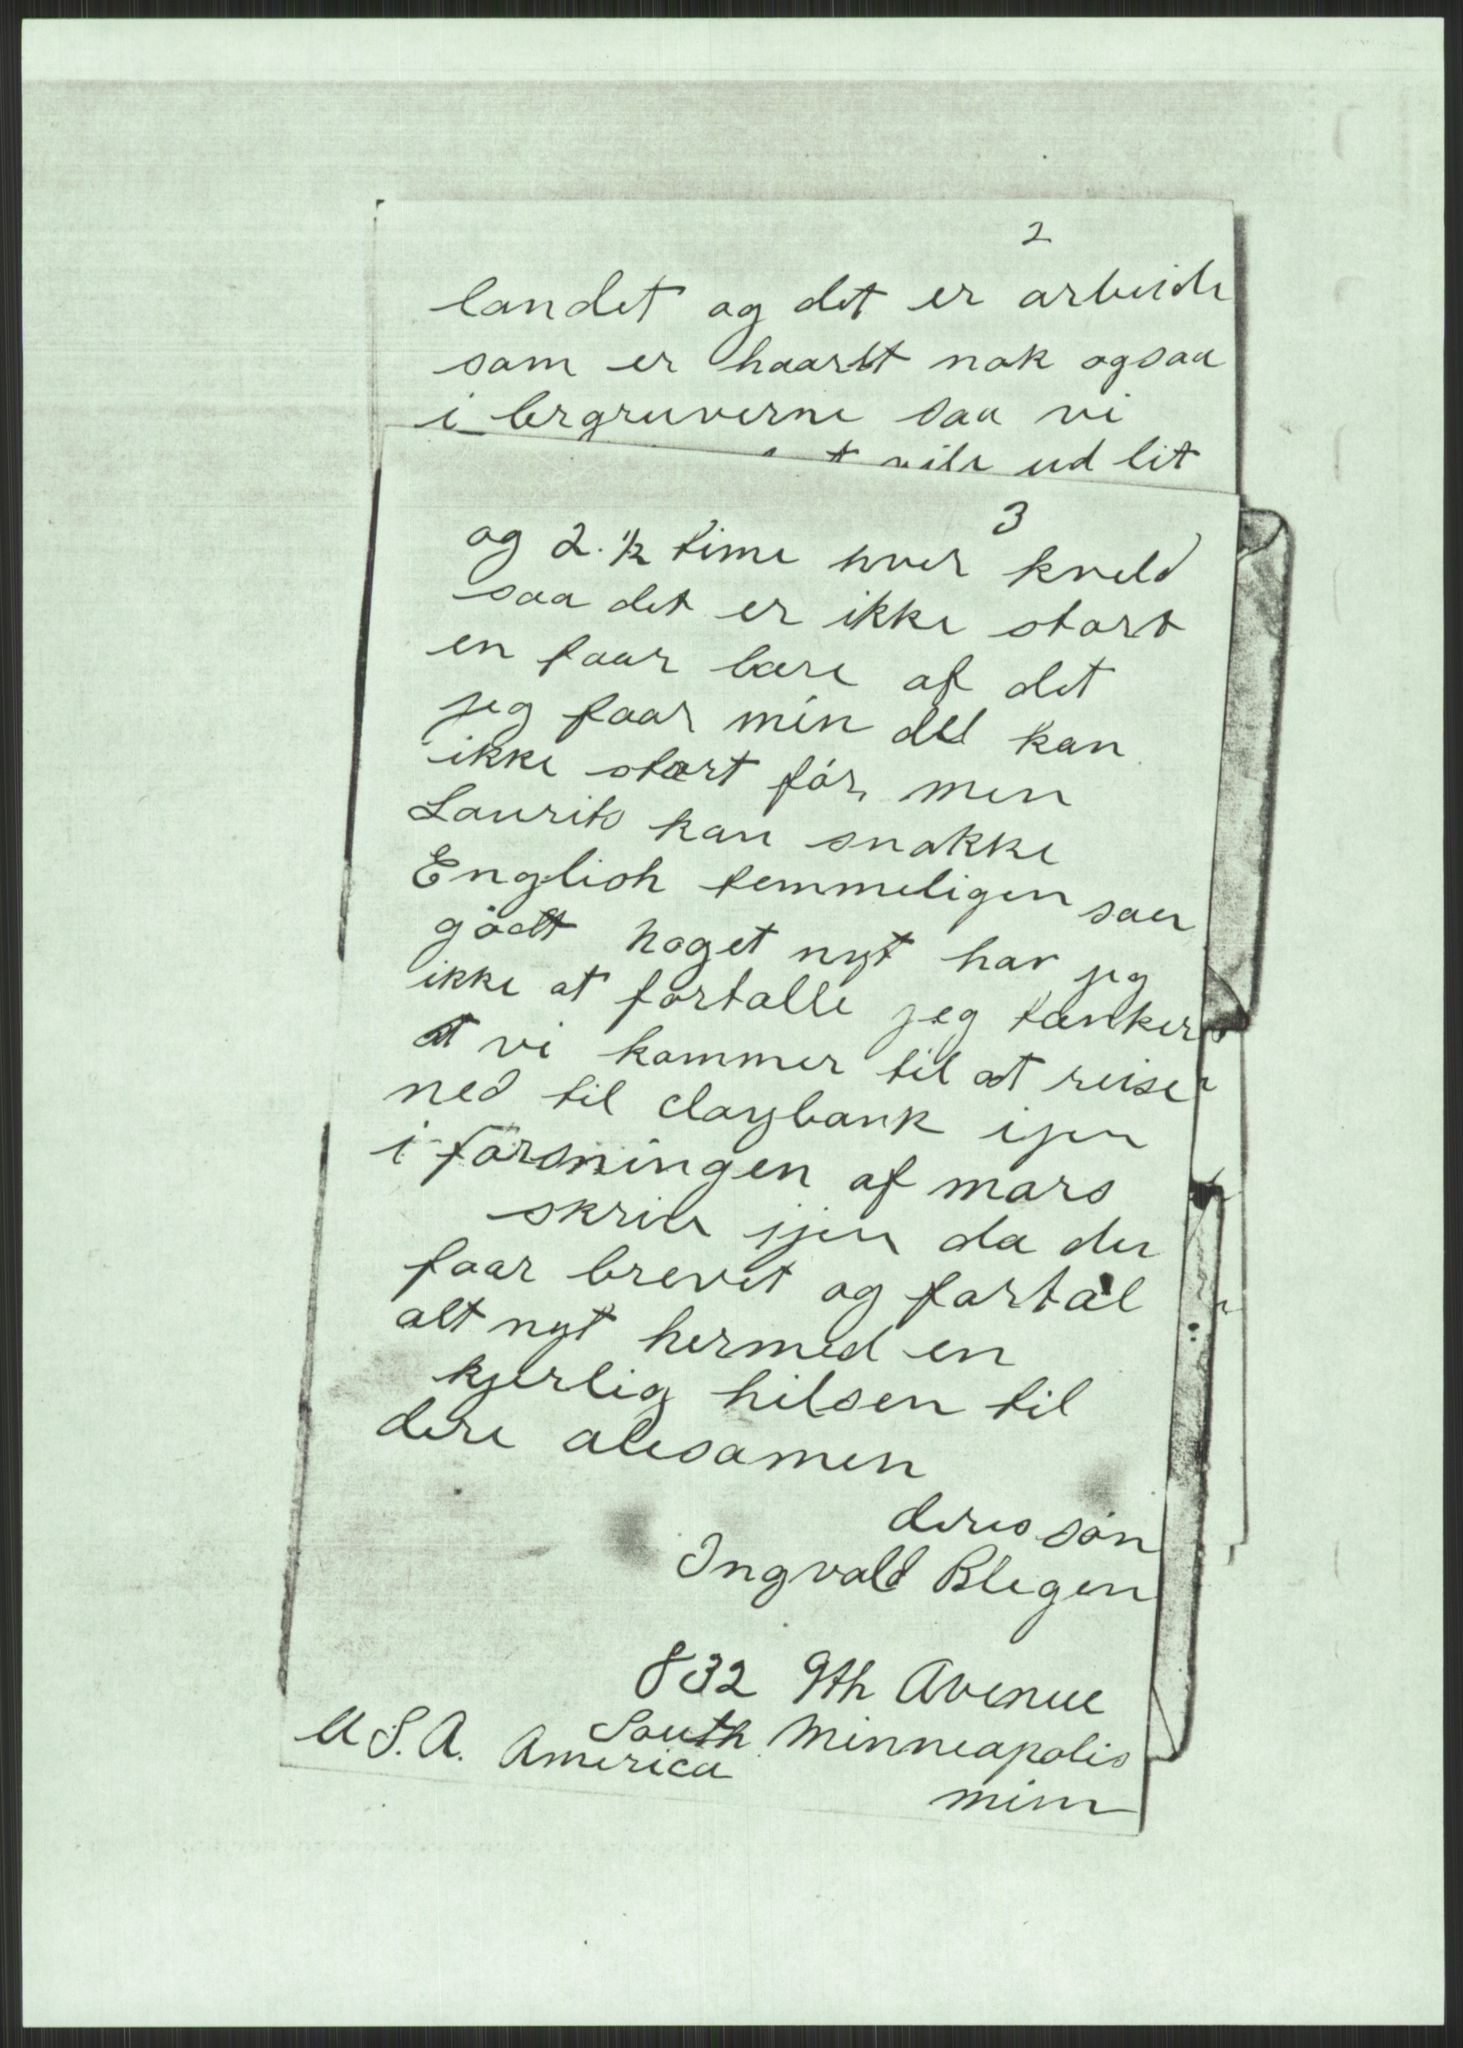 2
landet og det er arbeide
som er haardt nok ogsaa
i bergruverne saa vi
ud lit
3
og 2. 1/2 time hver kveld
saa det er ikke stort
en faar lære af det
jeg faar min del kan
ikke stort før, men
Laurits kan snakke
English temmeligen saa
gådt noget nyt har jeg
ikke at fortælle jeg tænker
at vi kommer til at reise
ned til claybank ijen
i førsningen af mars
skriv ijen da du
faar brevet og fortæl
alt nyt hermed en
kjerlig hilsen til
dere alesamen
deres søn
Ingvald Blegen
832 9th Avenue
South Minneapolis
minn
U S. A. America